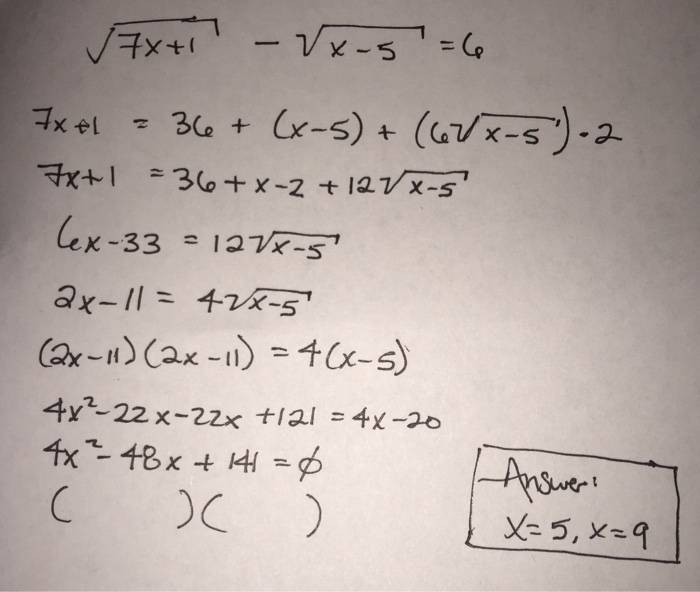 √7x+1 - √x-5 = 6
7x+1 = 36 + (x-5) + (6√x-5)·2
7x+1 = 36+x-2+12√x-5
6x-33 = 12√x-5
2x-11 = 4√x-5
(2x-11)(2x-11) = 4(x-5)
4x²-22x-22x+121 = 4x-20
4x²-48x+141 = ∅
( )( )
Answer:
X=5, x=9